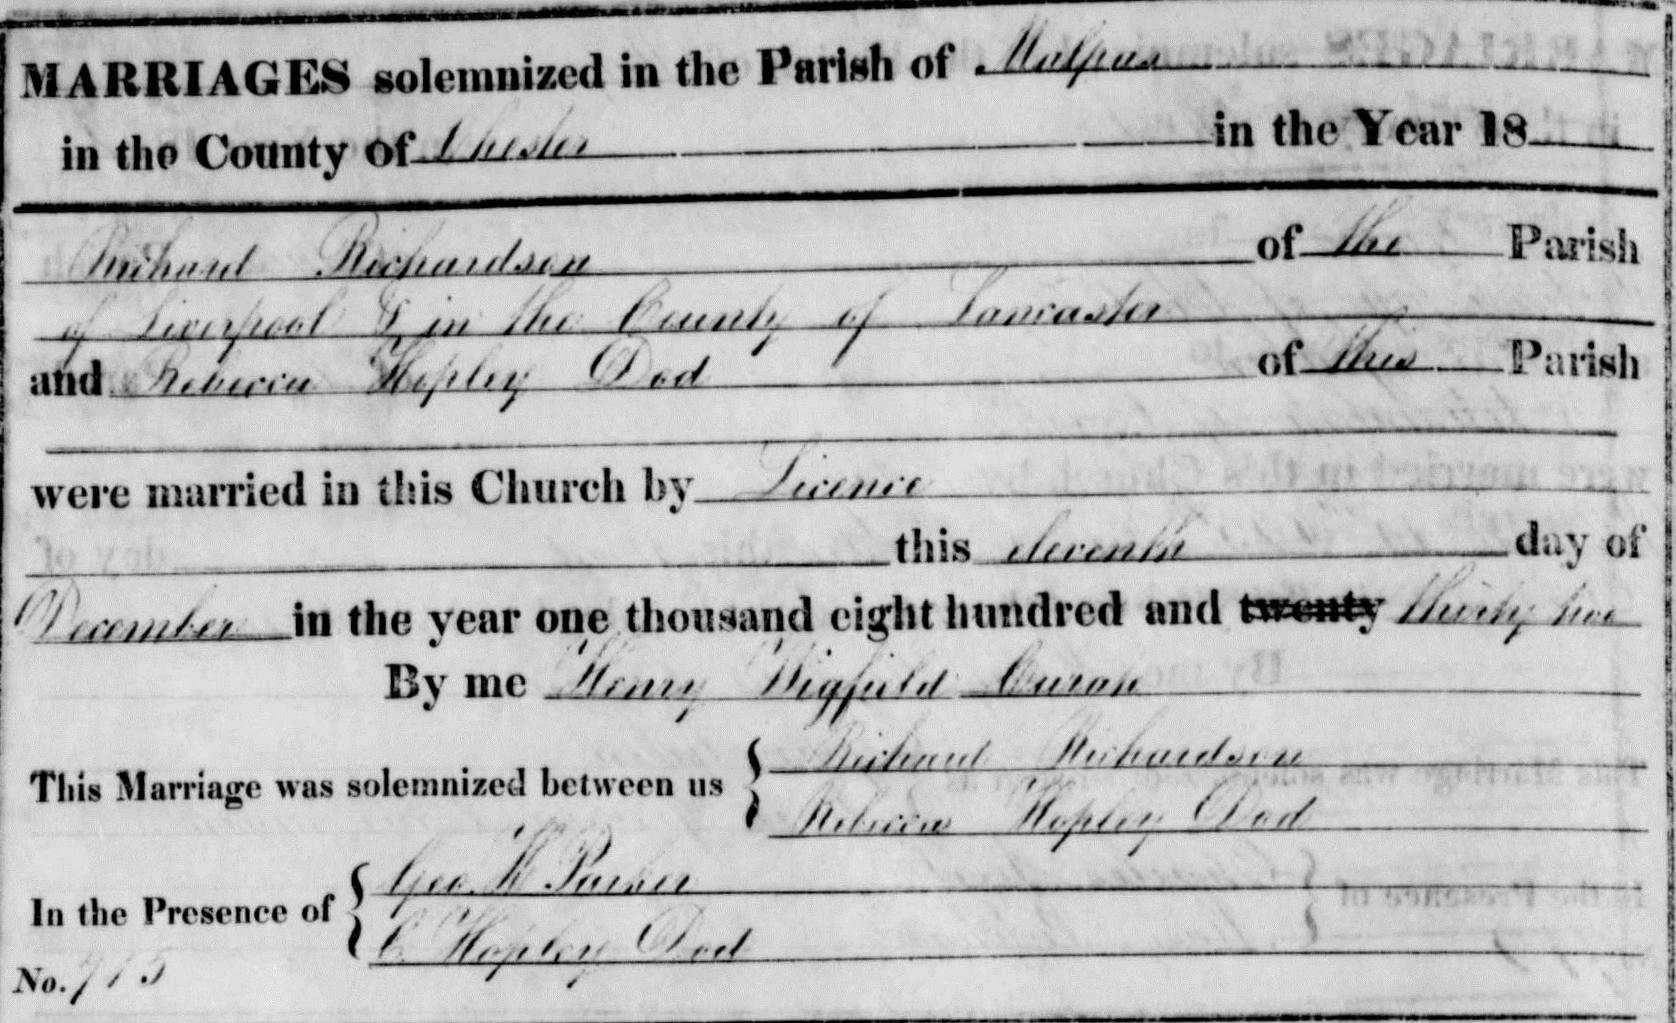 MARRIAGES solemnized in the Parish of Malpas
in the County of Chester in the Year 18
Richard Richardson of the Parish
of Liverpool & in the County of Lancaster
and Rebecca Hopley Dod of this Parish
were married in this Church by Licence
this eleventh day of
December in the year one thousand eight hundred and twenty thirty two
By me Henry Wigfield Curate
This Marriage was solemnized between us { Richard Richardson
Rebecca Hopley Dod
In the Presence of { Geo. H Parker
C Hopley Dod
No. 715